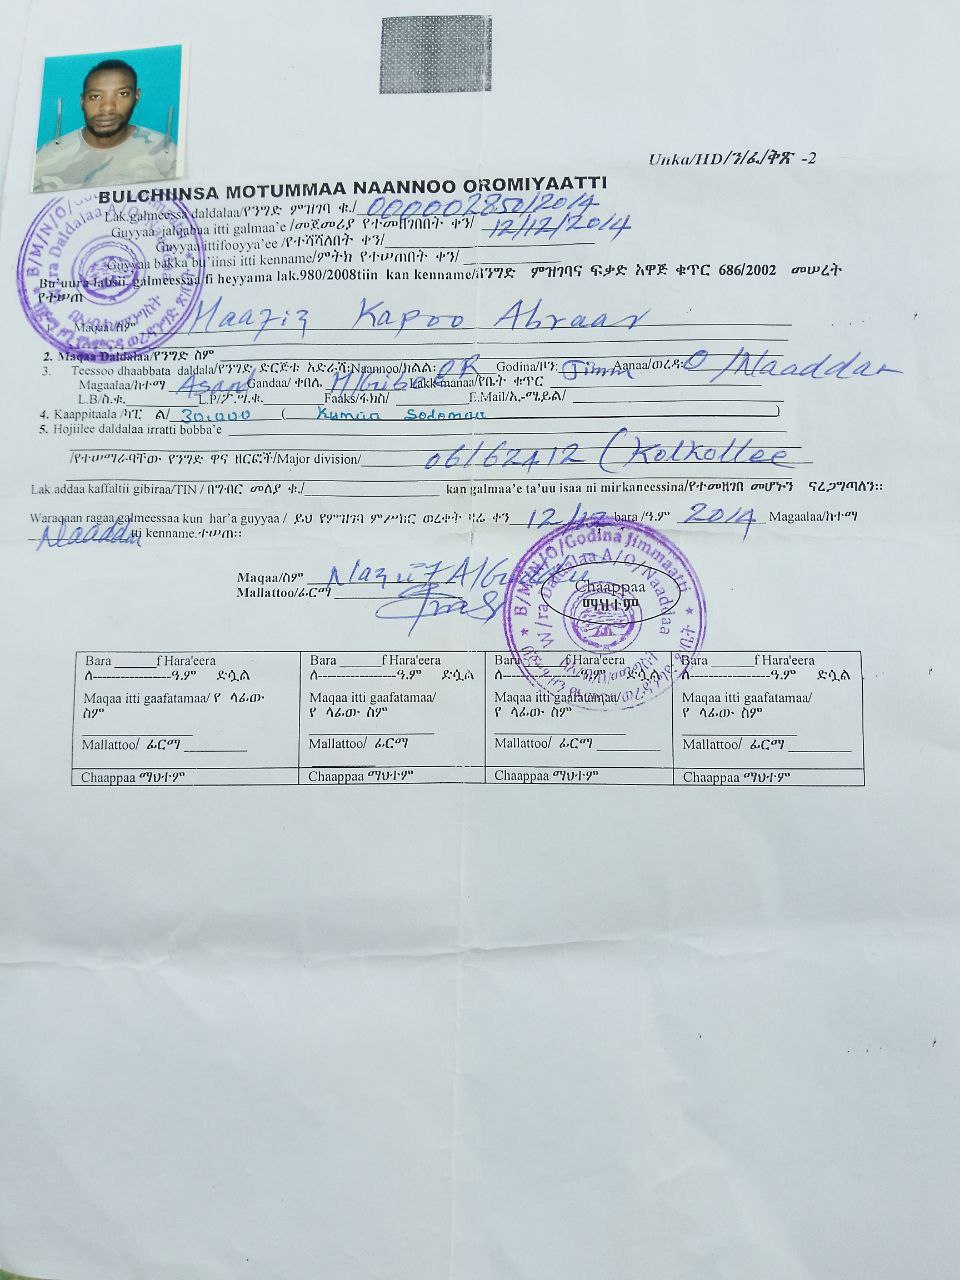 Unka/HD/ን/ፈ/ቅጽ -2
BULCHIINSA MOTUMMAA NAANNOO OROMIYAATTI
Lak.galmeessa daldalaa/የንግድ ምዝገባ ቁ./ 000002850/2014
Guyyaa jalqabaa itti galmaa'e /መጀመሪያ የተመዘገበበት ቀን/ 12/12/2014
Guyyaa ittifooyya'ee /የተሻሻለበት ቀን/
Guyyaa bakka bu'iinsi itti kenname/ምትክ የተሠጠበት ቀን/
Bu'uura labsii galmeessaa fi heyyama lak.980/2008tiin kan kenname/በንግድ ምዝገባና ፍቃድ አዋጅ ቁጥር 686/2002 መሠረት
የተሠጠ
1. Maqaa/ስም Haafiz Kapoo Abraar
2. Maqaa Daldalaa/የንግድ ስም
3. Teessoo dhaabbata daldala/የንግድ ድርጅቱ አድራሻ:Naannoo/ክልል: OR Godina/ዞን: Jimm Aanaa/ወረዳ: O/Naaddaa
Magaalaa/ከተማ Asand Gandaa/ ቀበሌ Lakk.manaa/የቤት ቁጥር
L.B/ስ.ቁ. L.P/ፖ.ሣ.ቁ. Faaks/ፋክስ/ E.Mail/ኢ-ሜይል/
4. Kaappitaala /ካፒታል/ 30,000 ( Kumaa Sodomaa )
5. Hojiilee daldalaa irratti bobba'e
/የተሠማራባቸው የንግድ ዋና ዘርፎች/Major division/ 06/62412 (Kolkollee
Lak.addaa kaffaltii gibiraa/TIN / በግብር መለያ ቁ./ kan galmaa'e ta'uu isaa ni mirkaneessina/የተመዘገበ መሆኑን ናረጋግጣለን::
Waraqaan ragaa galmeessaa kun har'a guyyaa / ይህ የምዝገባ ምሥክር ወረቀት ዛሬ ቀን 12/12 bara /ዓ.ም 2014 Magaalaa/ከተማ
Naaddaa tti kenname.ተሠጠ::
Maqaa/ስም
Mallattoo/ፊርማ
Chaappaa
ማህተም
B/M/N/O/Godina Jimmaatti
W/ra Daldalaa A/O/Naaddaa
Bara f Hara'eera Bara f Hara'eera Bara f Hara'eera Bara f Hara'eera
ለ------------ዓ.ም ድሷል ለ------------ዓ.ም ድሷል ለ------------ዓ.ም ድሷል ለ------------ዓ.ም ድሷል
Maqaa itti gaafatamaa/ የ ላፊው Maqaa itti gaafatamaa/ Maqaa itti gaafatamaa/ Maqaa itti gaafatamaa/
ስም የ ላፊው ስም የ ላፊው ስም የ ላፊው ስም
Mallattoo/ ፊርማ Mallattoo/ ፊርማ Mallattoo/ ፊርማ Mallattoo/ ፊርማ
Chaappaa ማህተም Chaappaa ማህተም Chaappaa ማህተም Chaappaa ማህተም